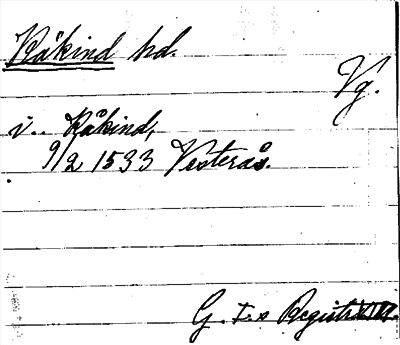 Kåkind hd.
Vg.
i.. Kåkind,
9/2 1533 Vesterås.
G. I.s Registr.